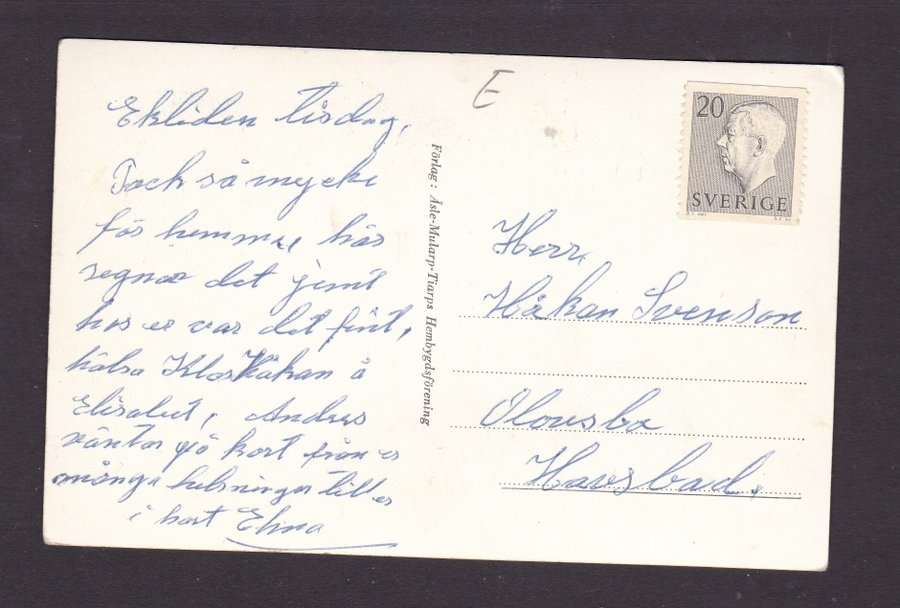 Ekliden tisdag,
Tack så mycke
för hemma, här
regnar det jemt
hos er var det fint,
hälsa Klas Håkan å
Elisabet, Anders
väntar på kort från er
många helsningar till er
i hast Elma
Förlag: Åsle-Mularp-Tiarps Hembygdsförening
E
20
SVERIGE
Herr,
Håkan Svenson
Olovsbo
Havsbad,